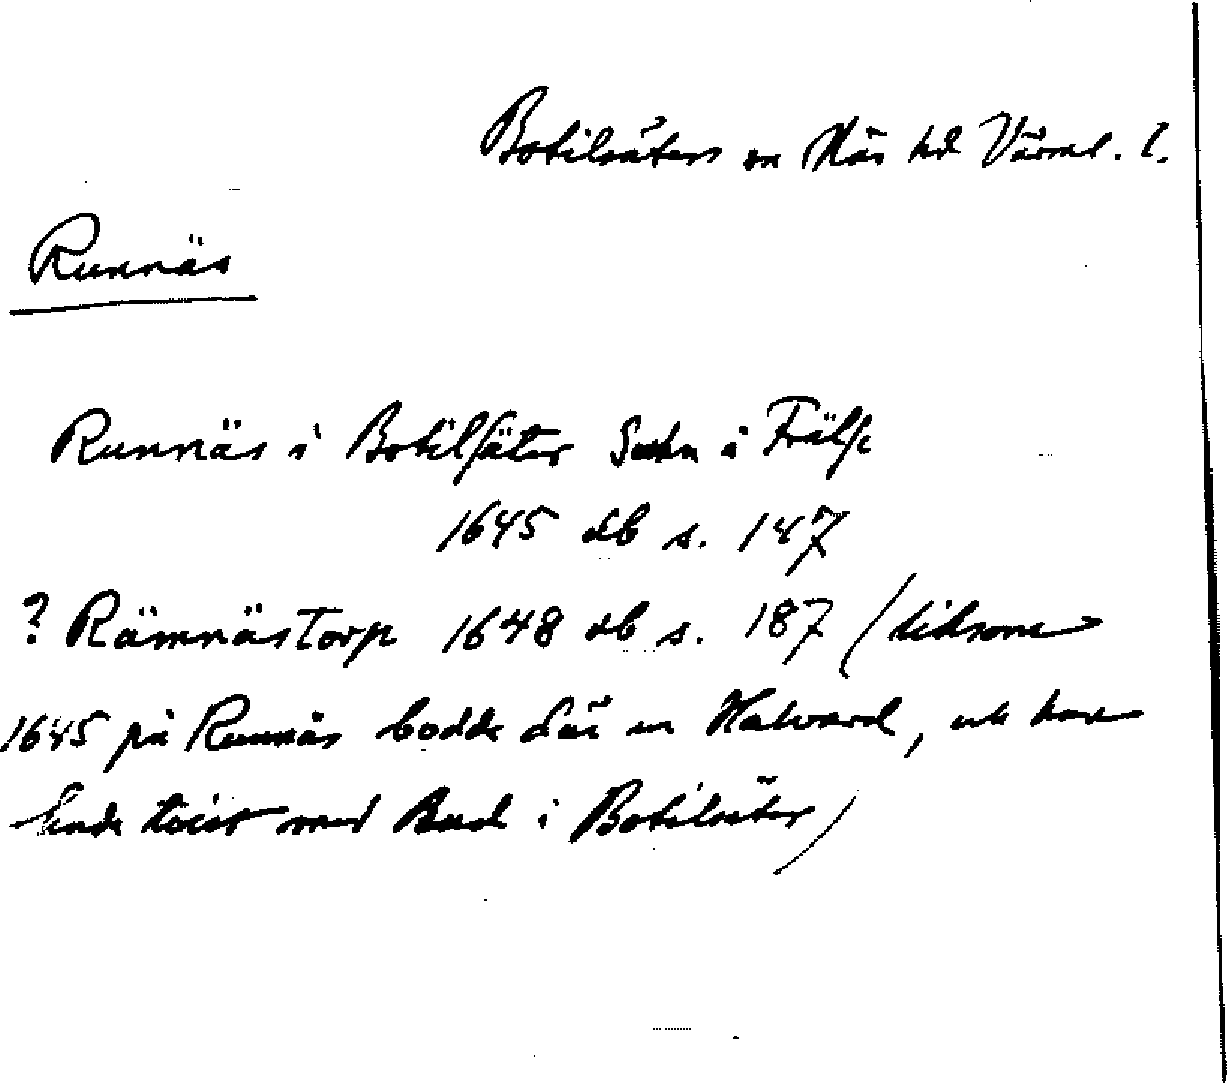 Botilsäters sn Näs hd Värml. l.
Runnäs
Runnäs i Botilsäter Sokn i Frälse
1645 db s. 147
? Rämnästorp 1648 db s. 187 (liksom
1645 på Runnäs bodde där en Halvard, och han
hade tvist med Bud i Botilsäter)